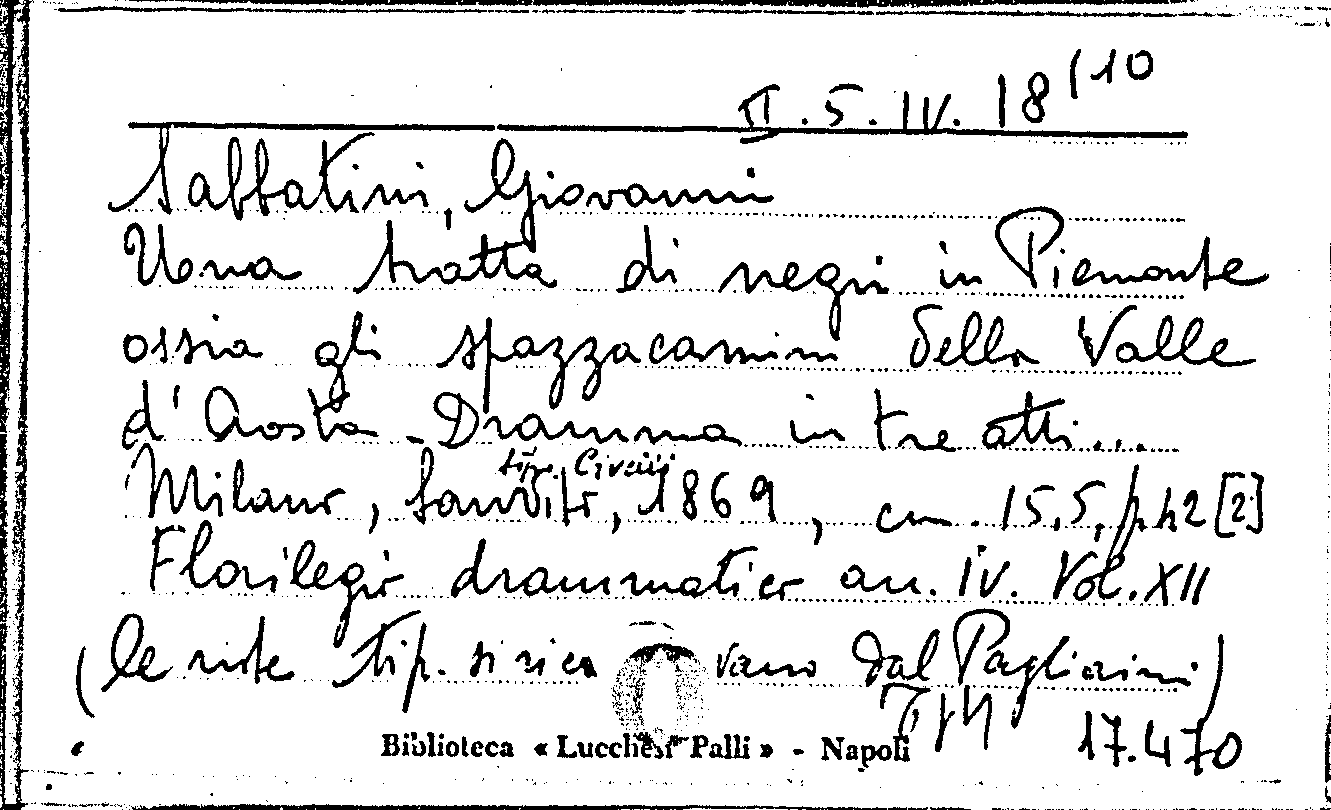 II. 5. IV. 18(10
Sabbatini, Giovanni
Una tratta di negri in Piemonte
ossia gli spazzacamini della Valle
d'Aosta - Dramma in tre atti...
tip. Civelli
Milano, Sanvito, 1869, cm. 15,5, pp. 42 [2]
Florilegio drammatico an. IV. Vol. XII
(le note tip. si ricavano dal Pagliaini)
17.470
Biblioteca « Lucchesi Palli » - Napoli